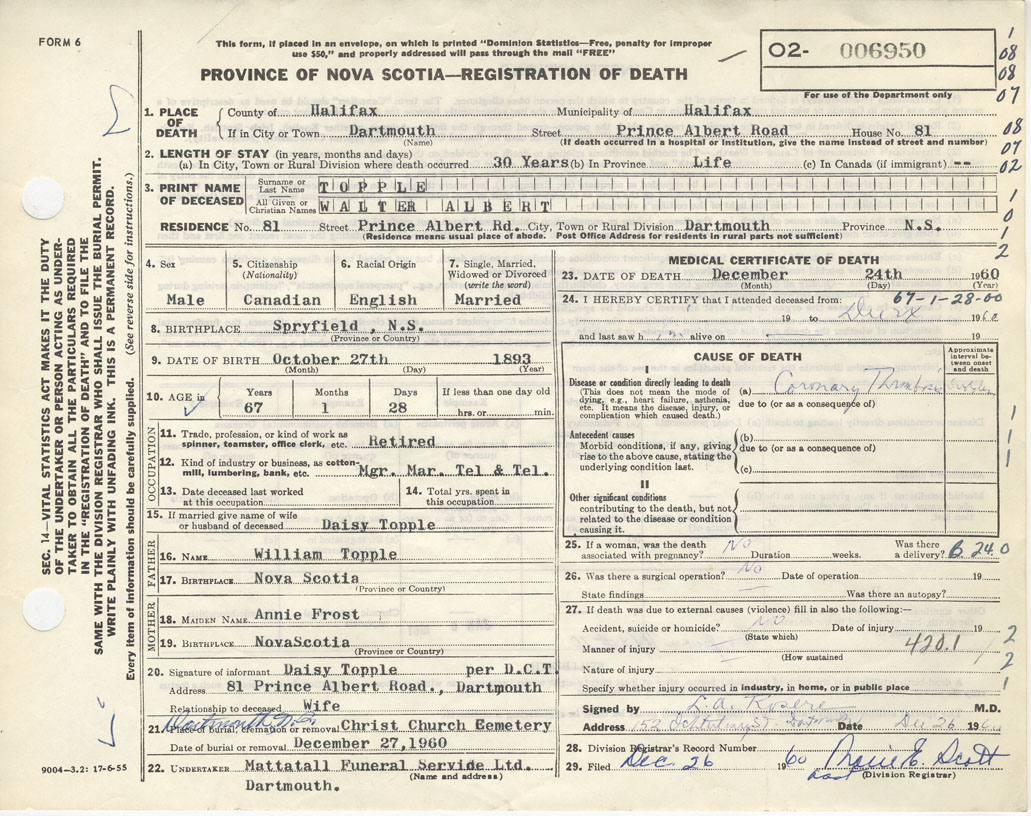 FORM 6
This form, if placed in an envelope, on which is printed "Dominion Statistics—Free, penalty for improper
use $50," and properly addressed will pass through the mail "FREE"
O2- 006950
For use of the Department only
PROVINCE OF NOVA SCOTIA—REGISTRATION OF DEATH
1
08
08
07
08
07
02
1
0
1
2
1. PLACE OF DEATH County of Halifax Municipality of Halifax
If in City or Town Dartmouth Street Prince Albert Road House No. 81
(Name) (If death occurred in a hospital or institution, give the name instead of street and number)
2. LENGTH OF STAY (in years, months and days)
(a) In City, Town or Rural Division where death occurred 30 Years (b) In Province Life (c) In Canada (if immigrant) --
3. PRINT NAME OF DECEASED Surname or Last Name TOPPLE
All Given or Christian Names WALTER ALBERT
RESIDENCE No. 81 Street Prince Albert Rd. City, Town or Rural Division Dartmouth Province N.S.
(Residence means usual place of abode. Post Office Address for residents in rural parts not sufficient)
4. Sex 5. Citizenship (Nationality) 6. Racial Origin 7. Single, Married, Widowed or Divorced (write the word)
Male Canadian English Married
8. BIRTHPLACE Spryfield , N.S.
(Province or Country)
9. DATE OF BIRTH October 27th 1893
(Month) (Day) (Year)
10. AGE in Years Months Days If less than one day old
67 1 28 hrs. or min.
OCCUPATION
11. Trade, profession, or kind of work as spinner, teamster, office clerk, etc. Retired
12. Kind of industry or business, as cotton-mill, lumbering, bank, etc. Mgr. Mar. Tel & Tel.
13. Date deceased last worked at this occupation 14. Total yrs. spent in this occupation
15. If married give name of wife or husband of deceased Daisy Topple
FATHER
16. NAME William Topple
17. BIRTHPLACE Nova Scotia
(Province or Country)
MOTHER
18. MAIDEN NAME Annie Frost
19. BIRTHPLACE NovaScotia
(Province or Country)
20. Signature of informant Daisy Topple per D.C.T.
Address 81 Prince Albert Road., Dartmouth
Relationship to deceased Wife
Dartmouth N.S.
21. Place of burial, cremation or removal Christ Church Eemetery
Date of burial or removal December 27,1960
22. UNDERTAKER Mattatall Funeral Servide Ltd.
(Name and address)
Dartmouth.
MEDICAL CERTIFICATE OF DEATH
23. DATE OF DEATH December 24th 1960
(Month) (Day) (Year)
67-1-28-00
24. I HEREBY CERTIFY that I attended deceased from:
19 to 1960
and last saw h alive on 19
CAUSE OF DEATH
Approximate interval between onset and death
I
Disease or condition directly leading to death
(This does not mean the mode of dying, e.g., heart failure, asthenia, etc. It means the disease, injury, or complication which caused death.)
(a) Coronary Thrombosis
due to (or as a consequence of)
Antecedent causes
Morbid conditions, if any, giving rise to the above cause, stating the underlying condition last.
(b)
due to (or as a consequence of)
(c)
II
Other significant conditions
contributing to the death, but not related to the disease or condition causing it.
1
1
1
25. If a woman, was the death associated with pregnancy? No Duration weeks. Was there a delivery? 6 24 0
26. Was there a surgical operation? No Date of operation 19
State findings Was there an autopsy?
27. If death was due to external causes (violence) fill in also the following:—
Accident, suicide or homicide? No Date of injury 19
(State which)
Manner of injury 420.1
(How sustained
Nature of injury
Specify whether injury occurred in industry, in home, or in public place
2
2
2
1
Signed by M.D.
Address 152 Date Dec 26 1960
28. Division Registrar's Record Number
29. Filed Dec. 26 1960 E. Scott
(Division Registrar)
SEC. 14—VITAL STATISTICS ACT MAKES IT THE DUTY
OF THE UNDERTAKER OR PERSON ACTING AS UNDER-
TAKER TO OBTAIN ALL THE PARTICULARS REQUIRED
IN THE "REGISTRATION OF DEATH" AND FILE THE
SAME WITH THE DIVISION REGISTRAR WHO SHALL ISSUE THE BURIAL PERMIT.
WRITE PLAINLY WITH UNFADING INK. THIS IS A PERMANENT RECORD.
Every item of information should be carefully supplied. (See reverse side for instructions.)
9004—3.2: 17-6-55